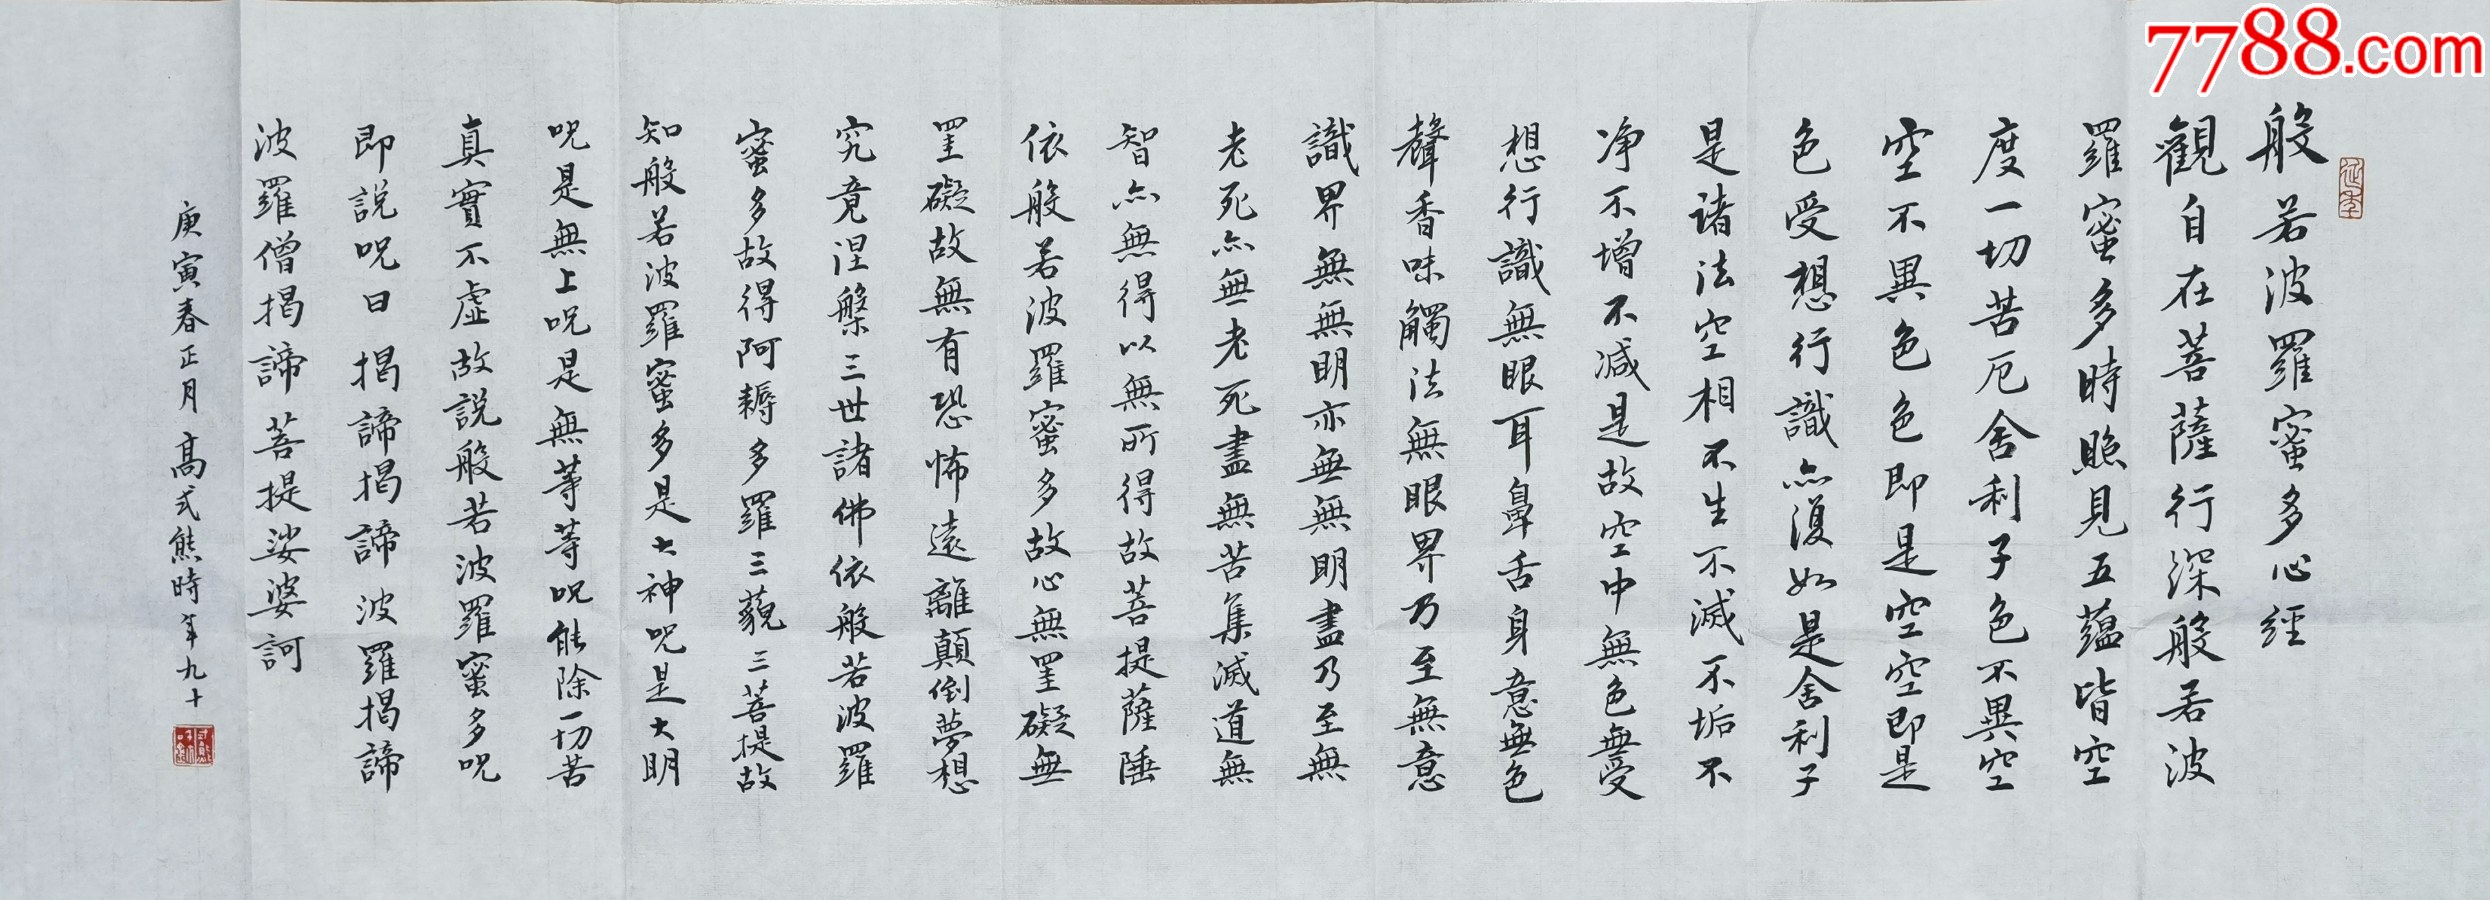 7788.com
般若波羅蜜多心經
觀自在菩薩行深般若波
羅蜜多時照見五蘊皆空
度一切苦厄舍利子色不異空
空不異色色即是空空即是
色受想行識亦復如是舍利子
是諸法空相不生不滅不垢不
净不增不减是故空中無色無受
想行識無眼耳鼻舌身意無色
聲香味觸法無眼界乃至無意
識界無無明亦無無明盡乃至無
老死亦無老死盡無苦集滅道無
智亦無得以無所得故菩提薩埵
依般若波羅蜜多故心無罣礙無
罣礙故無有恐怖遠離顛倒夢想
究竟涅槃三世諸佛依般若波羅
蜜多故得阿耨多羅三藐三菩提故
知般若波羅蜜多是大神呪是大明
呪是無上呪是無等等呪能除一切苦
真實不虛故説般若波羅蜜多呪
即説呪曰揭諦揭諦波羅揭諦
波羅僧揭諦菩提娑婆訶
庚寅春正月高式熊時年九十